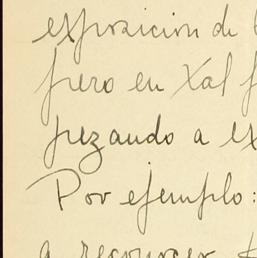 exposicion de l
pero en Xal f
pezando a ex
Por ejemplo:
a reconocer